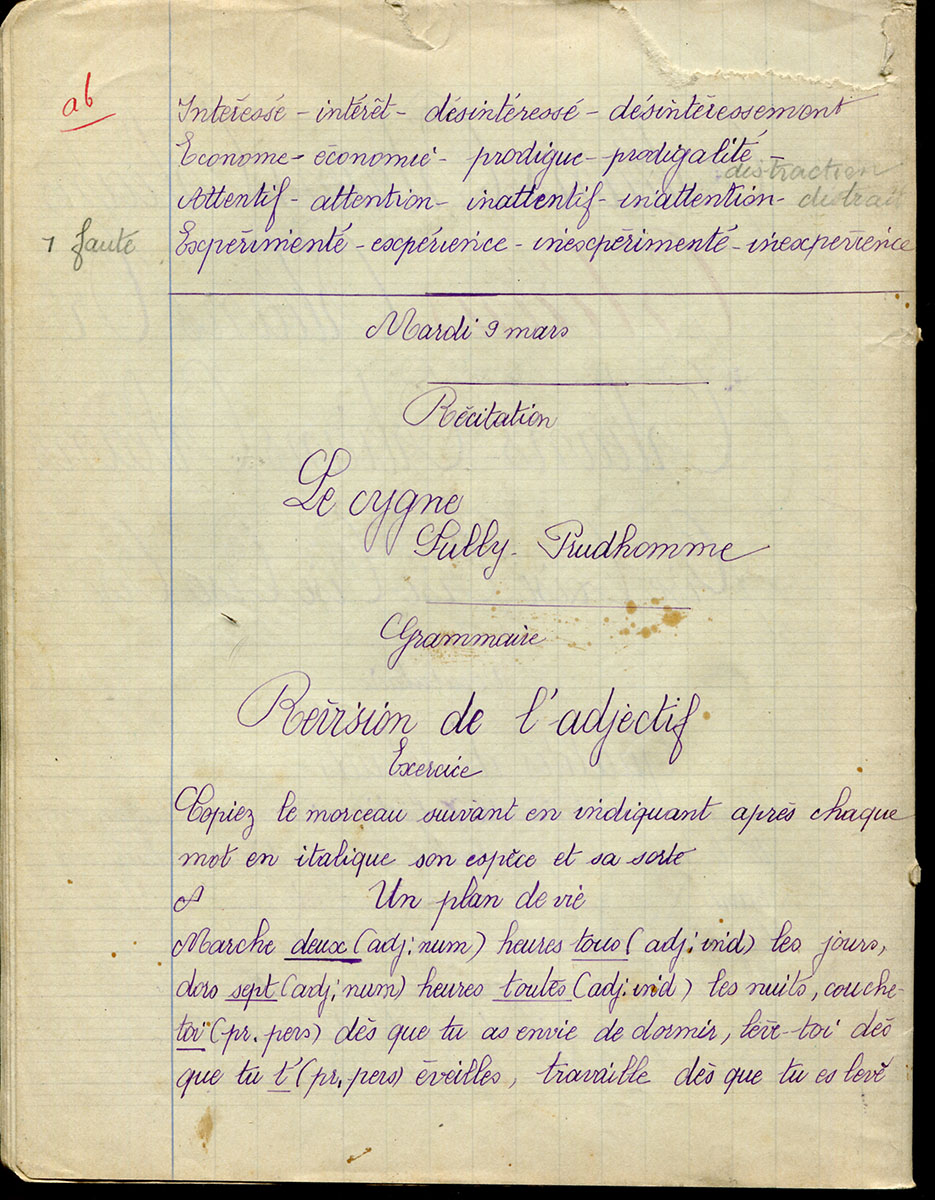 ab
Intéressé - intérêt - désintéressé - désintéressement
Econome - économie - prodigue - prodigalité -
distraction
Attentif - attention - inattentif - inattention - distrait
1 faute
Expérimenté - expérience - inexpérimenté - inexpérience
Mardi 9 mars
Récitation
Le cygne
Sully-Prudhomme
Grammaire
Révision de l'adjectif
Exercice
Copiez le morceau suivant en indiquant après chaque
mot en italique son espèce et sa sorte
Un plan de vie
Marche deux (adj. num) heures tous (adj. ind) les jours,
dors sept (adj. num) heures toutes (adj. ind) les nuits, couche-
toi (pr. pers) dès que tu as envie de dormir, lève-toi dès
que tu t' (pr. pers) éveilles, travaille dès que tu es levé